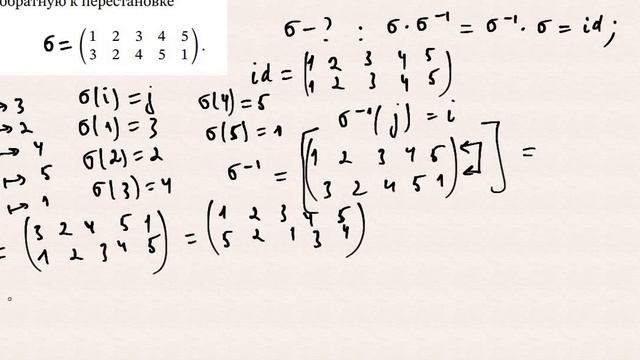 обратную к перестановке
σ = (1 2 3 4 5
3 2 4 5 1).
σ - ? : σ · σ⁻¹ = σ⁻¹ · σ = id;
id = (1 2 3 4 5
1 2 3 4 5)
→ 3
→ 2
→ 4
↦ 5
↦ 1
σ(i) = j
σ(1) = 3
σ(2) = 2
σ(3) = 4
σ(4) = 5
σ(5) = 1
σ⁻¹(j) = i
σ⁻¹ = [(1 2 3 4 5
3 2 4 5 1)] =
= (3 2 4 5 1
1 2 3 4 5) = (1 2 3 4 5
5 2 1 3 4)